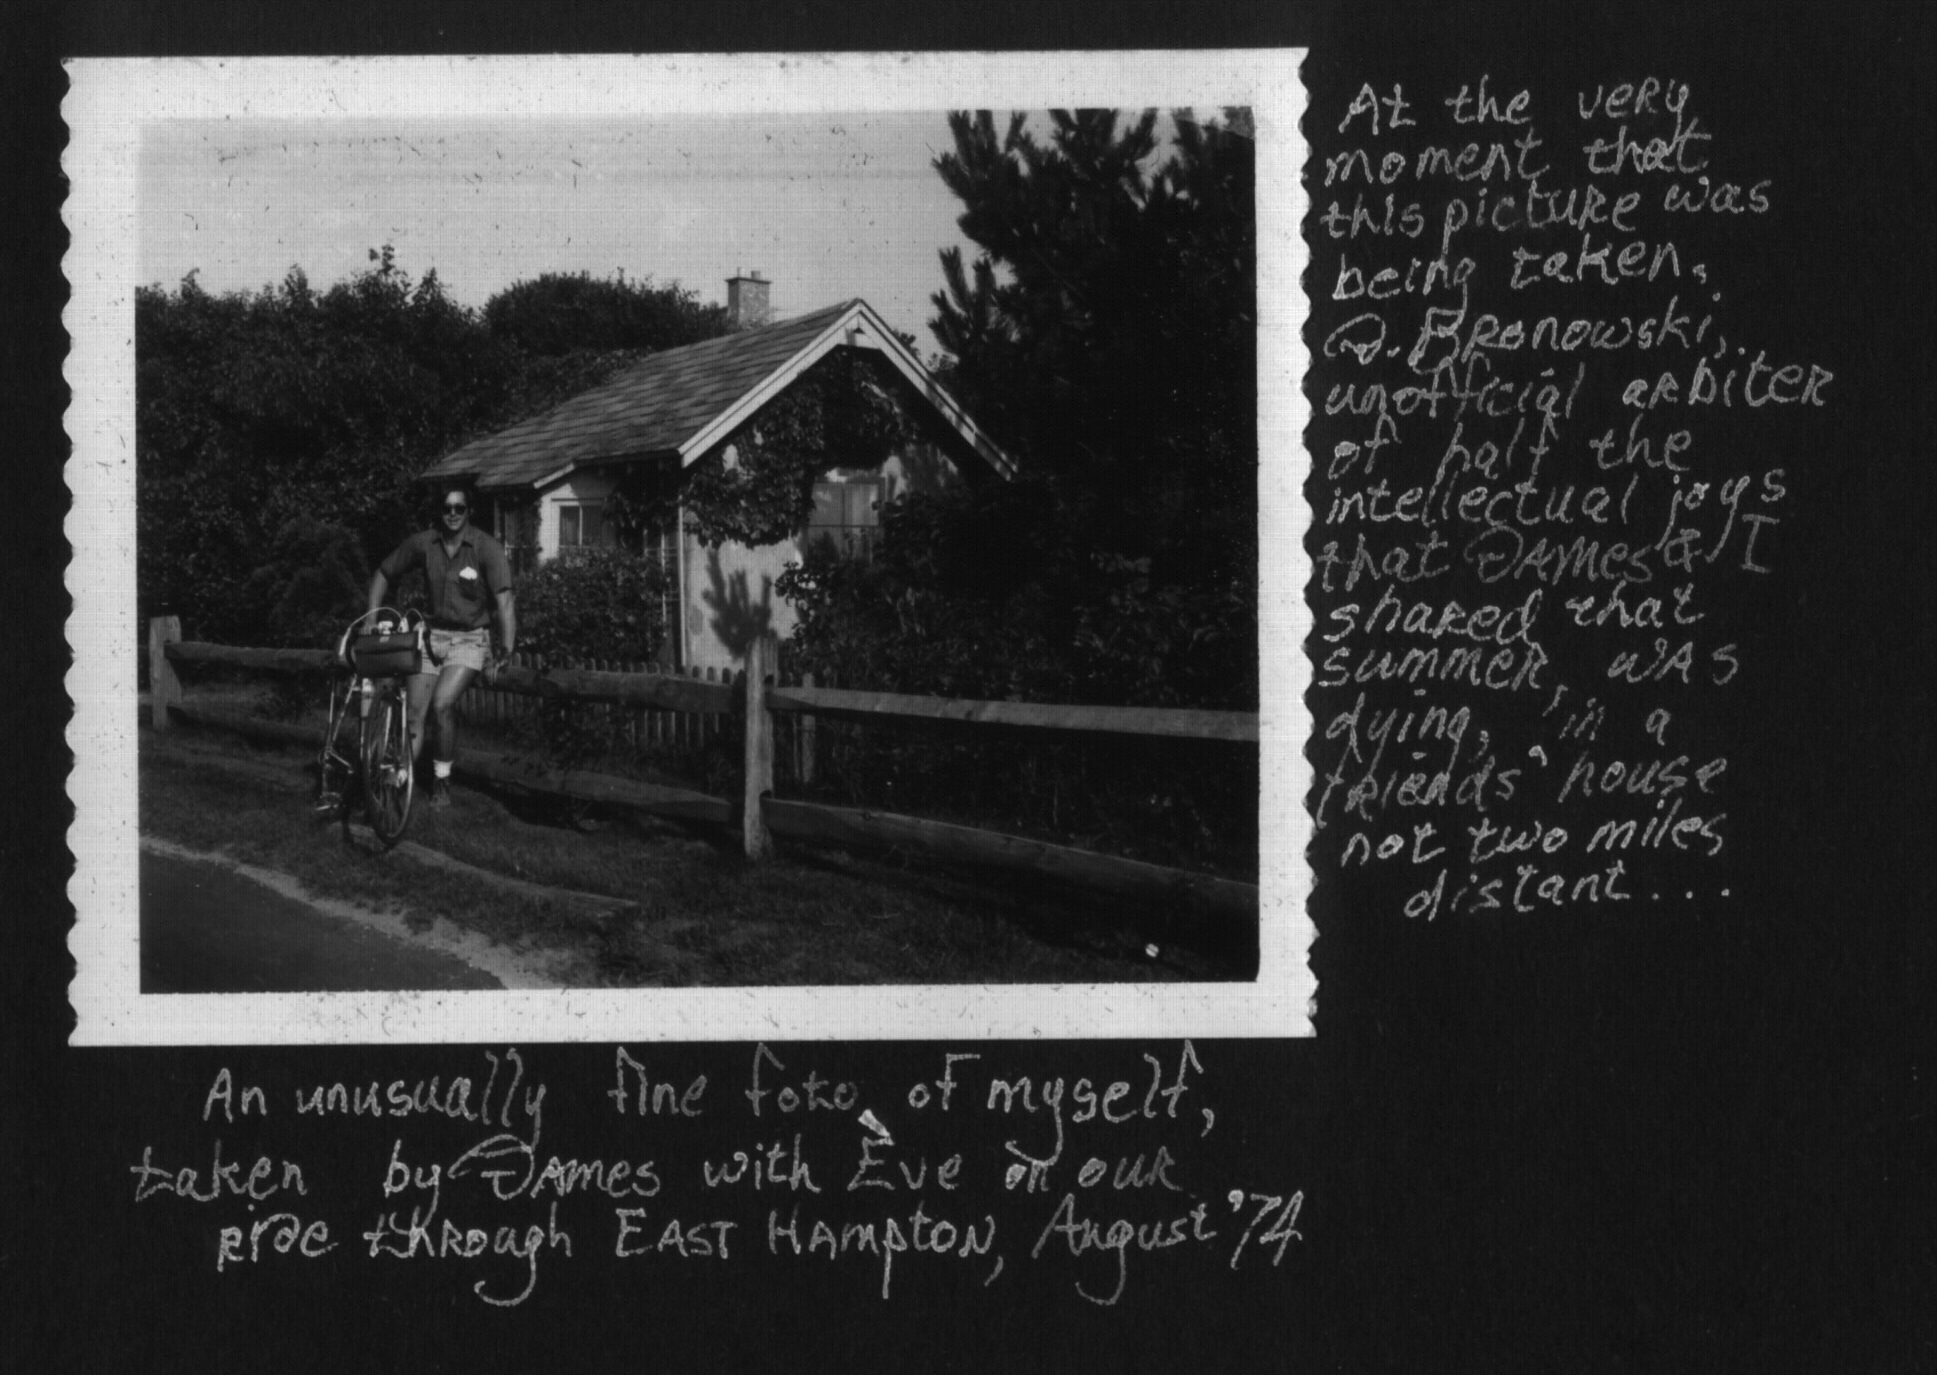 At the very
moment that
this picture was
being taken,
J. Bronowski,
unofficial arbiter
of half the
intellectual joys
that James & I
shared that
summer, was
dying, in a
friends' house
not two miles
distant...
An unusually fine foto of myself,
taken by James with Eve on our
ride through EAST HAMPTON, August '74